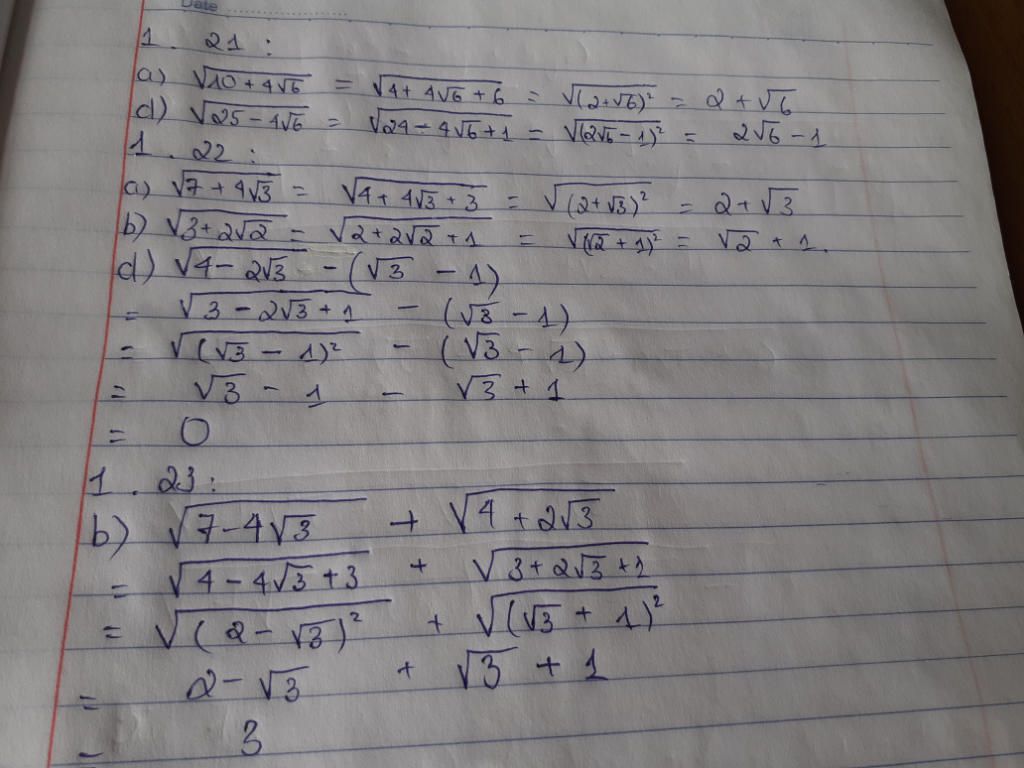 Date
1. 21:
a) √(10 + 4√6) = √(4 + 4√6 + 6) = √((2+√6)²) = 2 + √6
d) √(25 - 4√6) = √(24 - 4√6 + 1) = √((2√6 - 1)²) = 2√6 - 1
1. 22:
a) √(7 + 4√3) = √(4 + 4√3 + 3) = √((2+√3)²) = 2 + √3
b) √(3 + 2√2) = √(2 + 2√2 + 1) = √((√2 + 1)²) = √2 + 1.
d) √(4 - 2√3) - (√3 - 1)
= √(3 - 2√3 + 1) - (√3 - 1)
= √((√3 - 1)²) - (√3 - 1)
= √3 - 1 - √3 + 1
= 0
1. 23:
b) √(7 - 4√3) + √(4 + 2√3)
= √(4 - 4√3 + 3) + √(3 + 2√3 + 1)
= √((2 - √3)²) + √((√3 + 1)²)
= 2 - √3 + √3 + 1
= 3